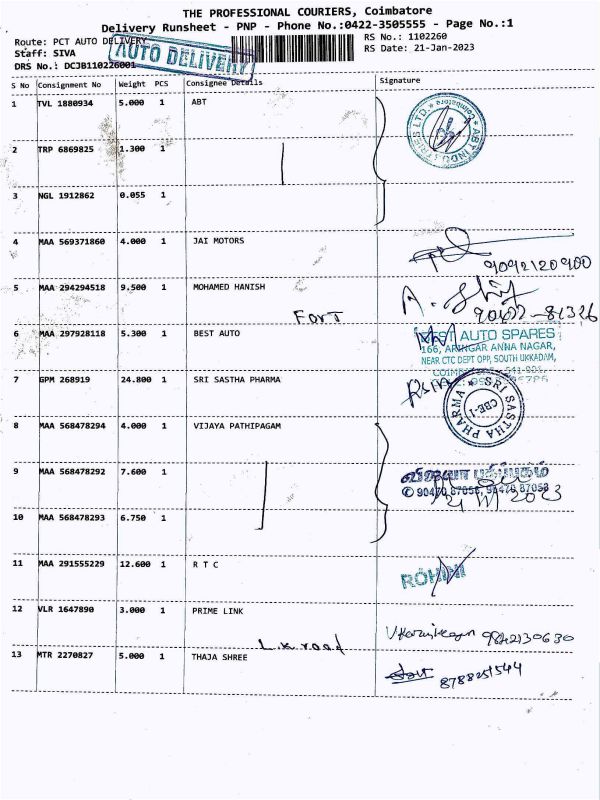 THE PROFESSIONAL COURIERS, Coimbatore
Delivery Runsheet - PNP - Phone No.:0422-3505555 - Page No.:1
Route: PCT AUTO DELIVERY
Staff: SIVA
DRS No.: DCJB110226001
AUTO DELIVERY
RS No.: 1102260
RS Date: 21-Jan-2023
S No Consignment No Weight PCS Consignee Details Signature
1 TVL 1880934 5.000 1 ABT
ABT INDUSTRIES LTD. * Coimbatore *
2 TRP 6869825 1.300 1
3 NGL 1912862 0.055 1
4 MAA 569371860 4.000 1 JAI MOTORS
9092120900
5 MAA 294294518 9.500 1 MOHAMED HANISH
Fort
90477-81326
6 MAA 297928118 5.300 1 BEST AUTO
BEST AUTO SPARES
166, ARINGAR ANNA NAGAR,
NEAR CTC DEPT OPP, SOUTH UKKADAM,
7 GPM 268919 24.800 1 SRI SASTHA PHARMA
* SRI SASTHA PHARMA
CBE-1
8 MAA 568478294 4.000 1 VIJAYA PATHIPAGAM
9 MAA 568478292 7.600 1
விஜயா பதிப்பகம்
✆ 90470 87053, 90470 87058
10 MAA 568478293 6.750 1
11 MAA 291555229 12.600 1 R T C
ROHINI
12 VLR 1647890 3.000 1 PRIME LINK
9842130630
L.K road
13 MTR 2270827 5.000 1 THAJA SHREE
8788251544